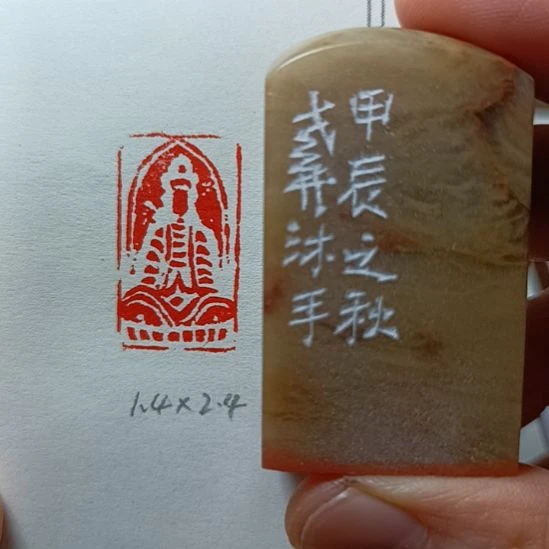 甲辰之秋
沐手
1.4×2.4